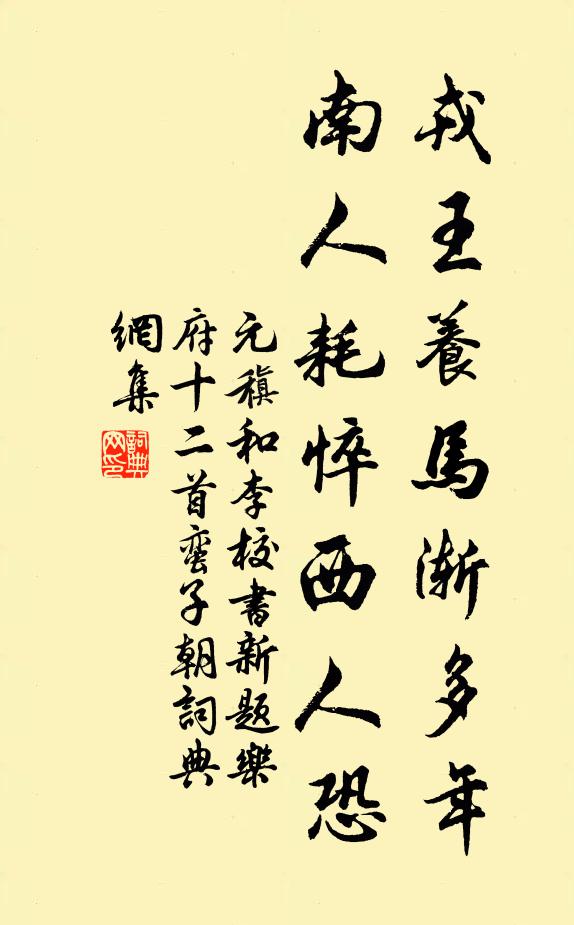 戎王養馬漸多年
南人耗悴西人恐
元稹和李校書新題樂
府十二首蠻子朝詞典
網集
詞典
网印